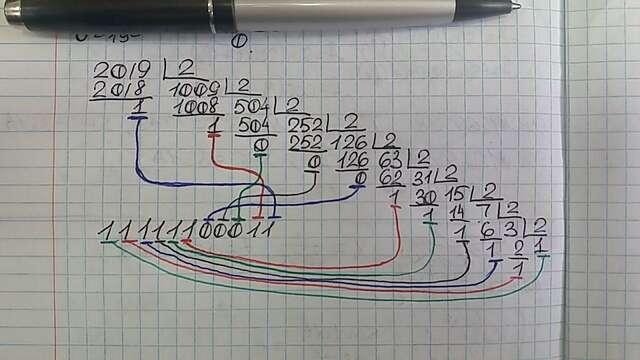 2019 2
2018 1009 2
1 1008 504 2
1 504 252 2
0 252 126 2
0 126 63 2
0 62 31 2
1 30 15 2
1 14 7 2
1 6 3 2
1 2 1
1
11111100011